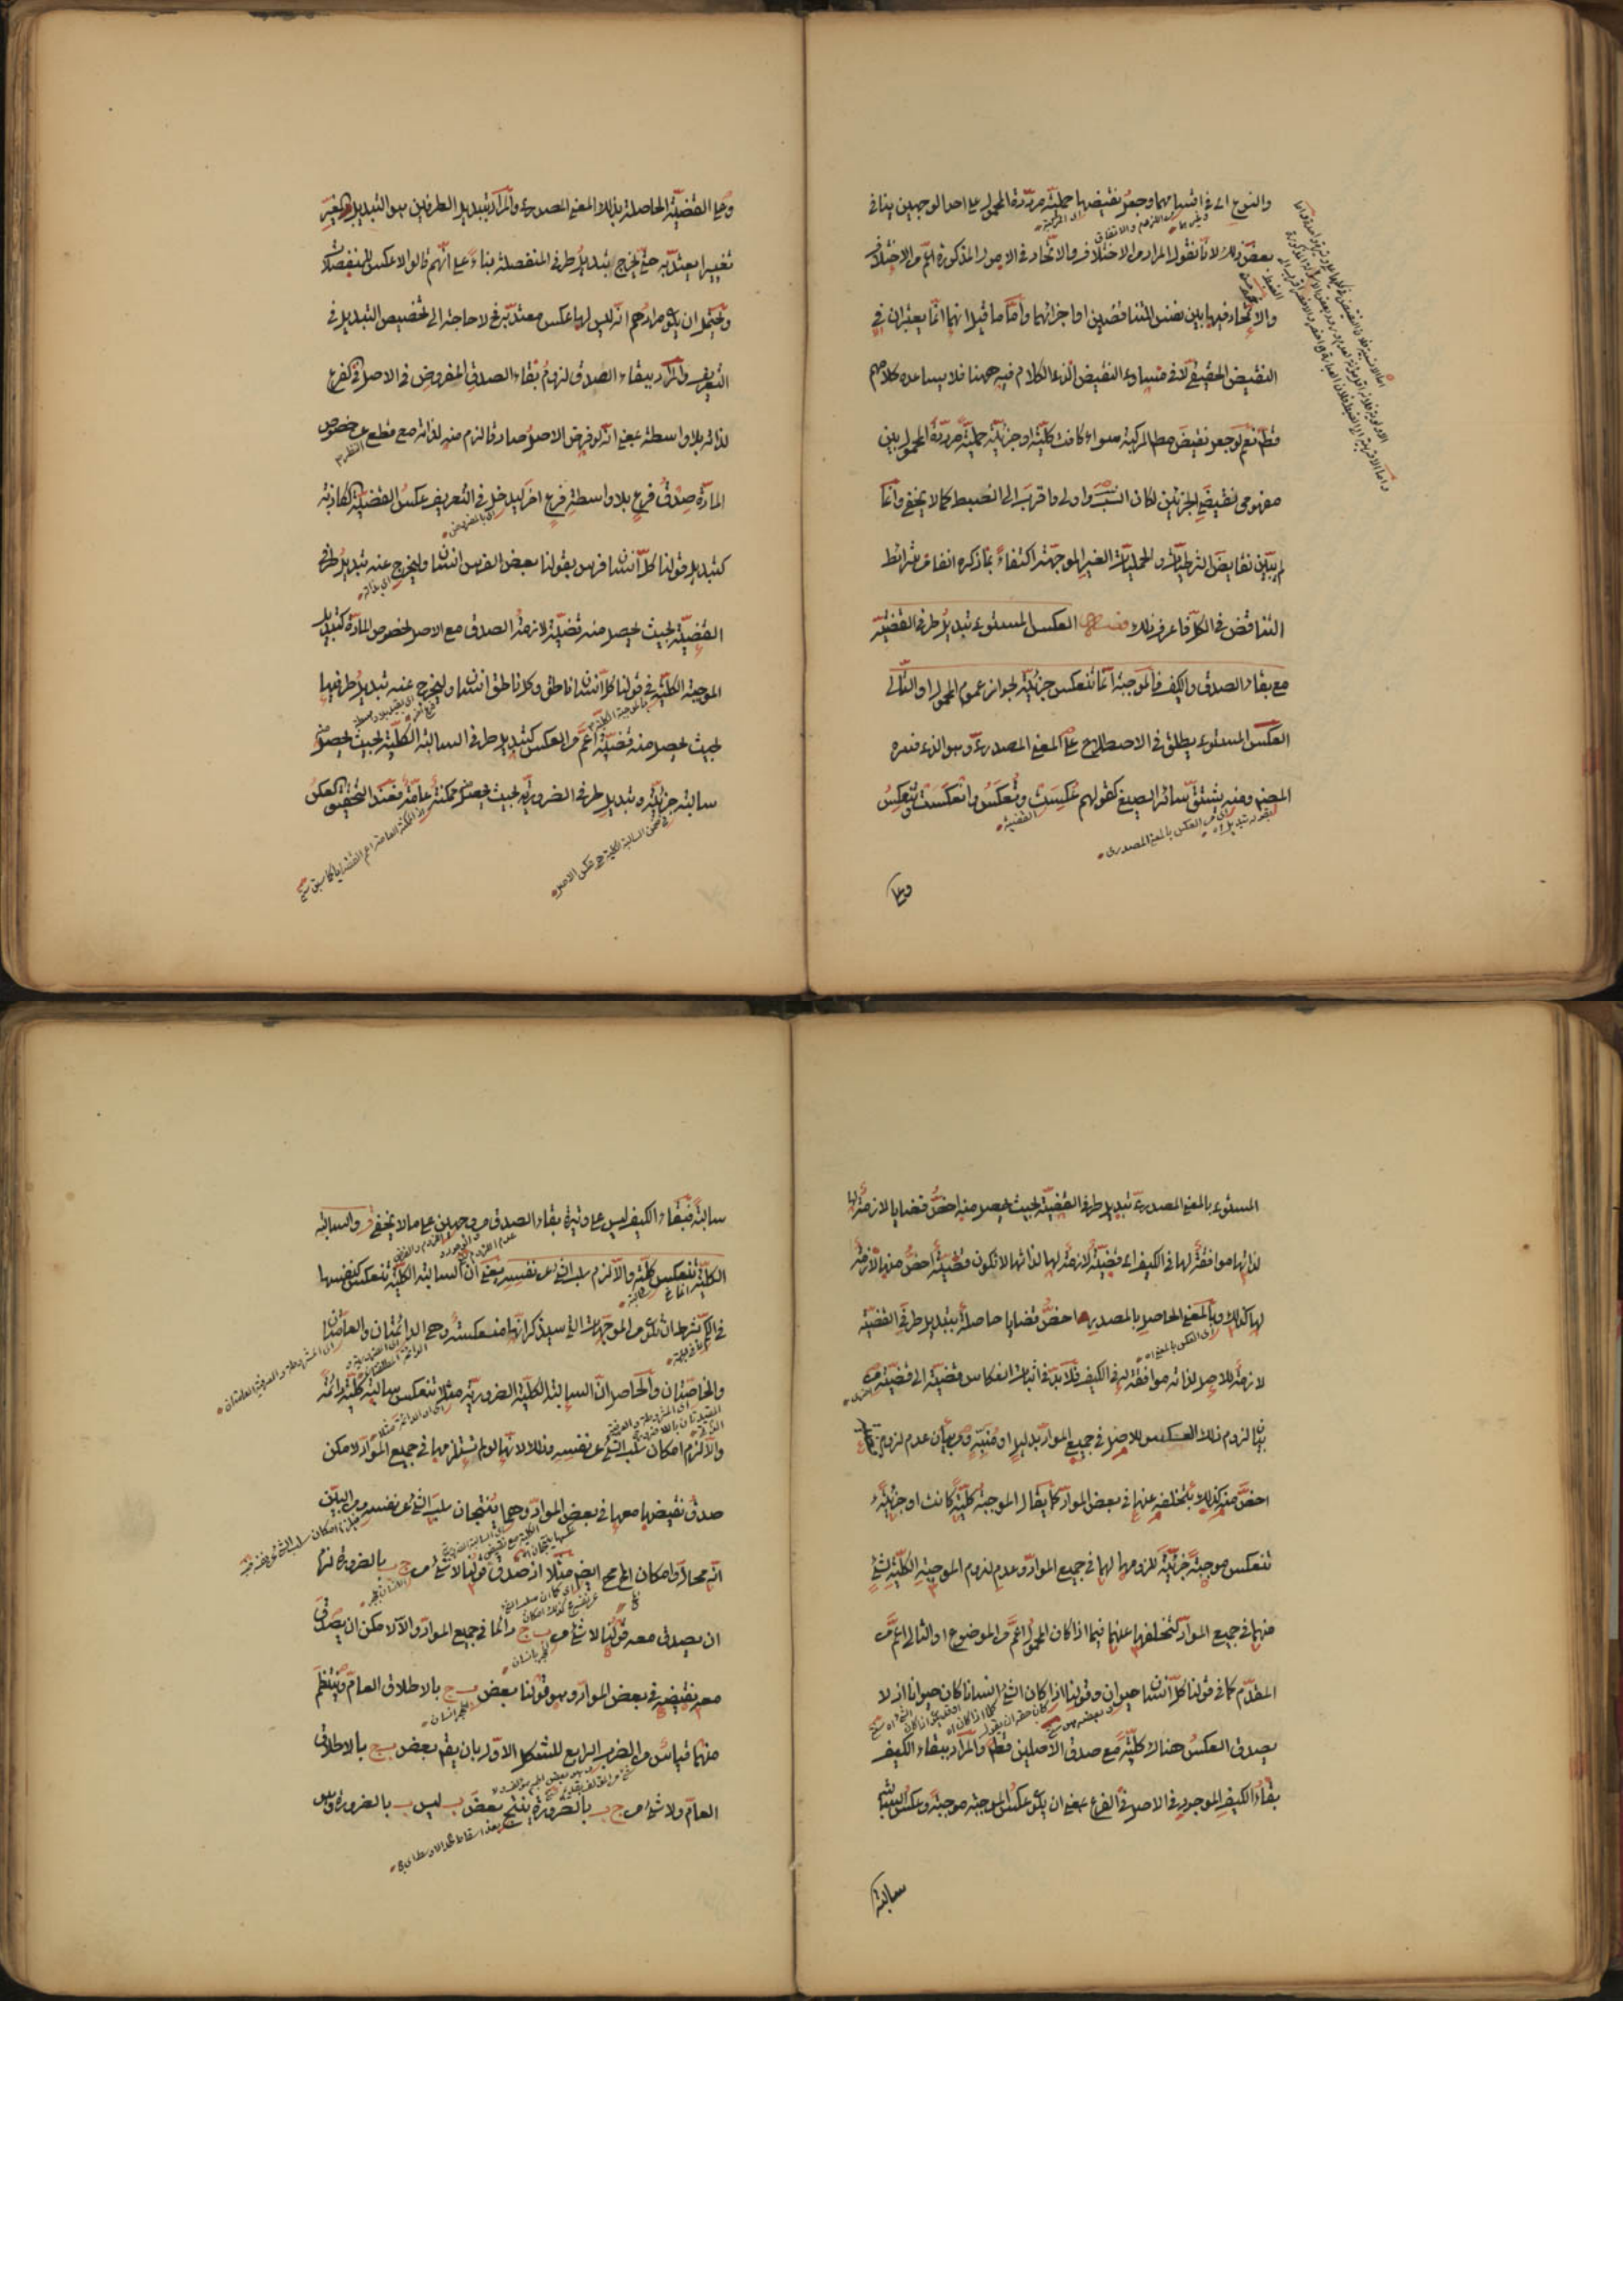 والنوع اى فى اشباههما وجعل نقيضها حملية مرددة المحمول على احد الوجهين ينافى
بعض ذلك لانا نقول المراد من الاختلاف والاتحاد فى الامور المذكورة اعم من الاختلاف
والاتحاد فيها بين نفس المتناقضين او اجزائهما وأما ما قيل انهما انما يعتبران فى
النقيض الحقيقى لا فى مساوى النقيض الذى الكلام فيه ههنا فلا يساعده كلامهم
قط نعم لو جعل نقيض مط المركبة سواء كانت كلية او جزئية حملية مرددة المحمول بين
مفهومى نقيضى الجزئين لكان انسب واولى واقرب الى الضبط كما لا يخفى وانما
لم يتبين نقايض الشرطيات والحمليات الغير الموجهة اكتفاء بما ذكره انفا من شرائط
التناقض فى الكل فاعرف ذلك فصل العكس المستوى تبديل طرفى القضية
مع بقاء الصدق والكيف فالموجبة انما تنعكس جزئية لجواز عموم المحمول او التالى
العكس المستوى يطلق فى الاصطلاح على المعنى المصدرى وهو الذى فسره
المص ومنه يشتق سائر الصيغ كقولهم عكست وتعكس وانعكست وتنعكس
وعلى
وعلى القضية الحاصلة بذلك المعنى المصدرى والمراد بتبديل الطرفين هو التبديل المغير
تغييرا يعتد به حتى يخرج تبديل طرفى المنفصلة بناء على انهم قالوا لا عكس للمنفصلات
ويحتمل ان يكون مرادهم انه ليس لها عكس معتد به فلا حاجة الى تخصيص التبديل فى
التعريف والمراد ببقاء الصدق لزوم بقاء الصدق المفروض فى الاصل فى الفرع
لذاته بلا واسطة بمعنى انه لو فرض الاصل صادقا لزم منه لذاته مع قطع النظر عن خصوص
المادة صدق فرع بلا واسطة فرع اخر ليدخل فى التعريف عكس القضية الكاذبة
كتبديل قولنا كل انسان فرس بقولنا بعض الفرس انسان وليخرج عنه تبديل طرفى
القضية بحيث يحصل منه قضية لازمة الصدق مع الاصل لخصوص المادة كتبديل
الموجبة الكلية فى قولنا كل انسان ناطق وكل ناطق انسان وليخرج عنه تبديل طرفيها
بحيث يحصل منه قضية اعم من العكس كتبديل طرفى السالبة الكلية بحيث يحصل منه
سالبة جزئية وتبديل طرفى الضرورية بحيث يحصل منه ممكنة عامة فعند التحقيق العكس
المستوى بالمعنى المصدرى تبديل طرفى القضية بحيث يحصل منه اخص قضايا لازمة لها
لذاتها موافقة لها فى الكيف اى قضية لازمة لها لذاتها لا تكون قضية اخص منها لازمة
لها كذلك وبالمعنى الحاصل بالمصدر اخص قضايا حاصلة بتبديل طرفى القضية
لازمة للاصل لذاته موافقة له فى الكيف فلا بد فى اثبات انعكاس قضية الى قضية من
بيان لزوم ذلك العكس للاصل فى جميع المواد بدليل او منبه ومن بيان عدم لزوم
اخص منه كذلك بتخلفه عنها فى بعض المواد كما يقال الموجبة كلية كانت او جزئية
تنعكس موجبة جزئية للزومها لهما فى جميع المواد وعدم لزوم الموجبة الكلية لشئ
منهما فى جميع المواد كتخلفها عنهما فيما اذا كان المحمول اعم من الموضوع او التالى اعم من
المقدم كما فى قولنا كل انسان حيوان وقولنا اذا كان الشئ انسانا كان حيوانا اذ لا
يصدق العكس هناك كلية مع صدق الاصلين قطعا والمراد ببقاء الكيف
بقاء الكيف الموجود فى الاصل فى الفرع بمعنى ان يكون عكس الموجبة موجبة وعكس السالبة
سالبة
سالبة فبقاء الكيف ليس على وتيرة بقاء الصدق من وجهين على ما لا يخفى والسالبة
الكلية تنعكس كلية والا لزم سلب الشئ عن نفسه يعنى ان السالبة الكلية تنعكس كنفسها
فى الكم بشرط ان تكون من الموجهات التى سيذكر انها منعكسة وهى الدائمتان والعامتان
والخاصتان والحاصل ان السالبة الكلية الضرورية مثلا تنعكس سالبة كلية دائمة
والا لزم امكان سلب الشئ عن نفسه وذلك لانها لو لم تستلزمها فى جميع المواد لامكن
صدق نقيضها معها فى بعض المواد وهما ينتجان سلب الشئ عن نفسه ومن البين
انه محال وامكان المح مح ايض مثلا اذ صدق قولنا لا شئ من ج ب بالضرورة لزم
ان يصدق معه قولنا لا شئ من ب ج دائما فى جميع المواد والا لامكن ان يصدق
معه نقيضه فى بعض المواد وهو قولنا بعض ب ج بالاطلاق العام وينتظم
منهما قياس من الضرب الرابع للشكل الاول بان يقم بعض ب ج بالاطلاق
العام ولا شئ من ج ب بالضرورة ينتج بعض ب ليس ب بالضرورة وهو